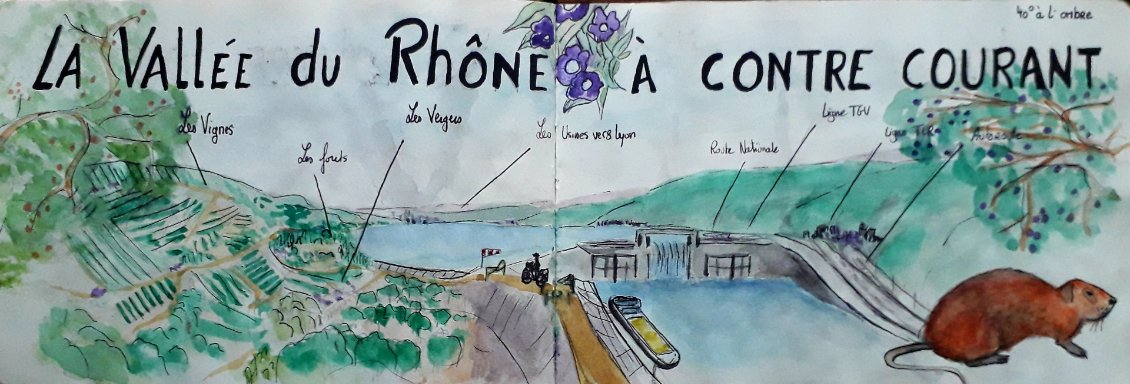 40° à l'ombre
La Vallée du Rhône à contre courant
Les Vignes
Les forêts
Les Vergers
Les Usines vers Lyon
Route Nationale
Ligne TGV
Ligne TER
Autoroute